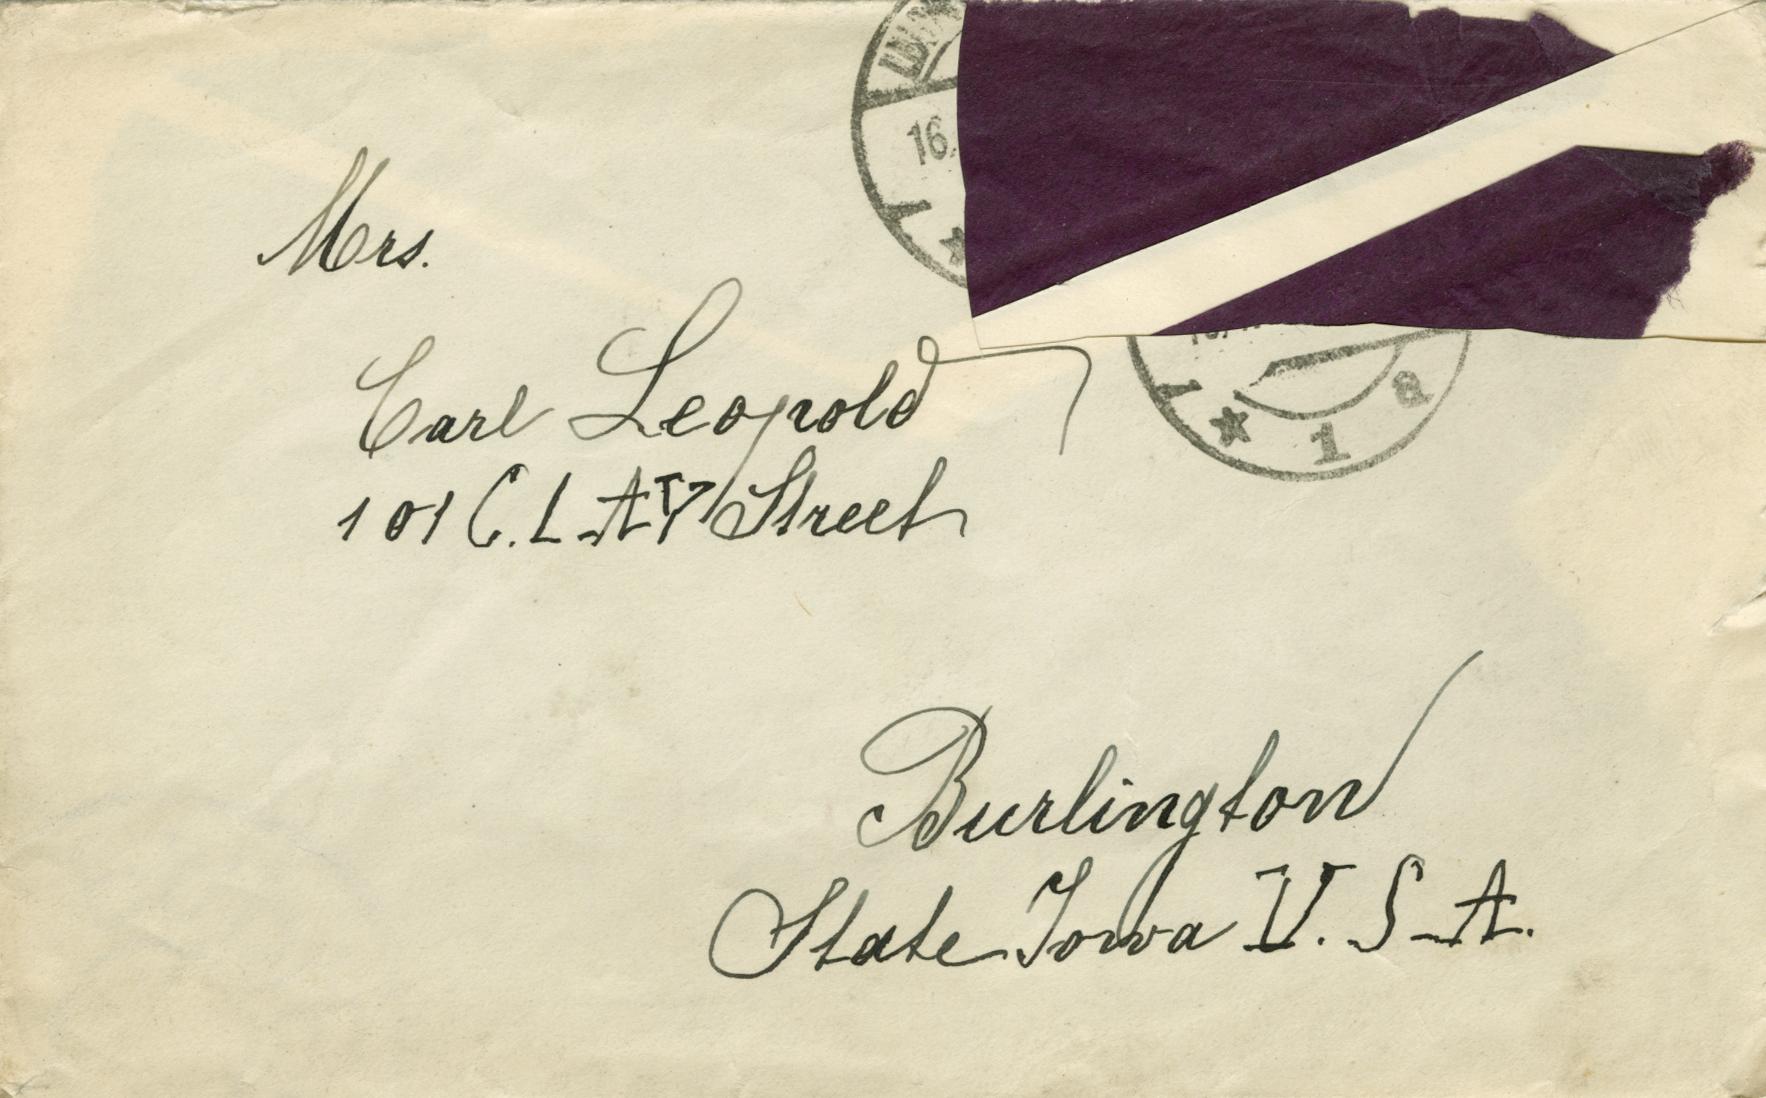 16.
Mrs.
Carl Leopold
101 C.L.AY Street
1
a
Burlington
State Iowa U.S.A.